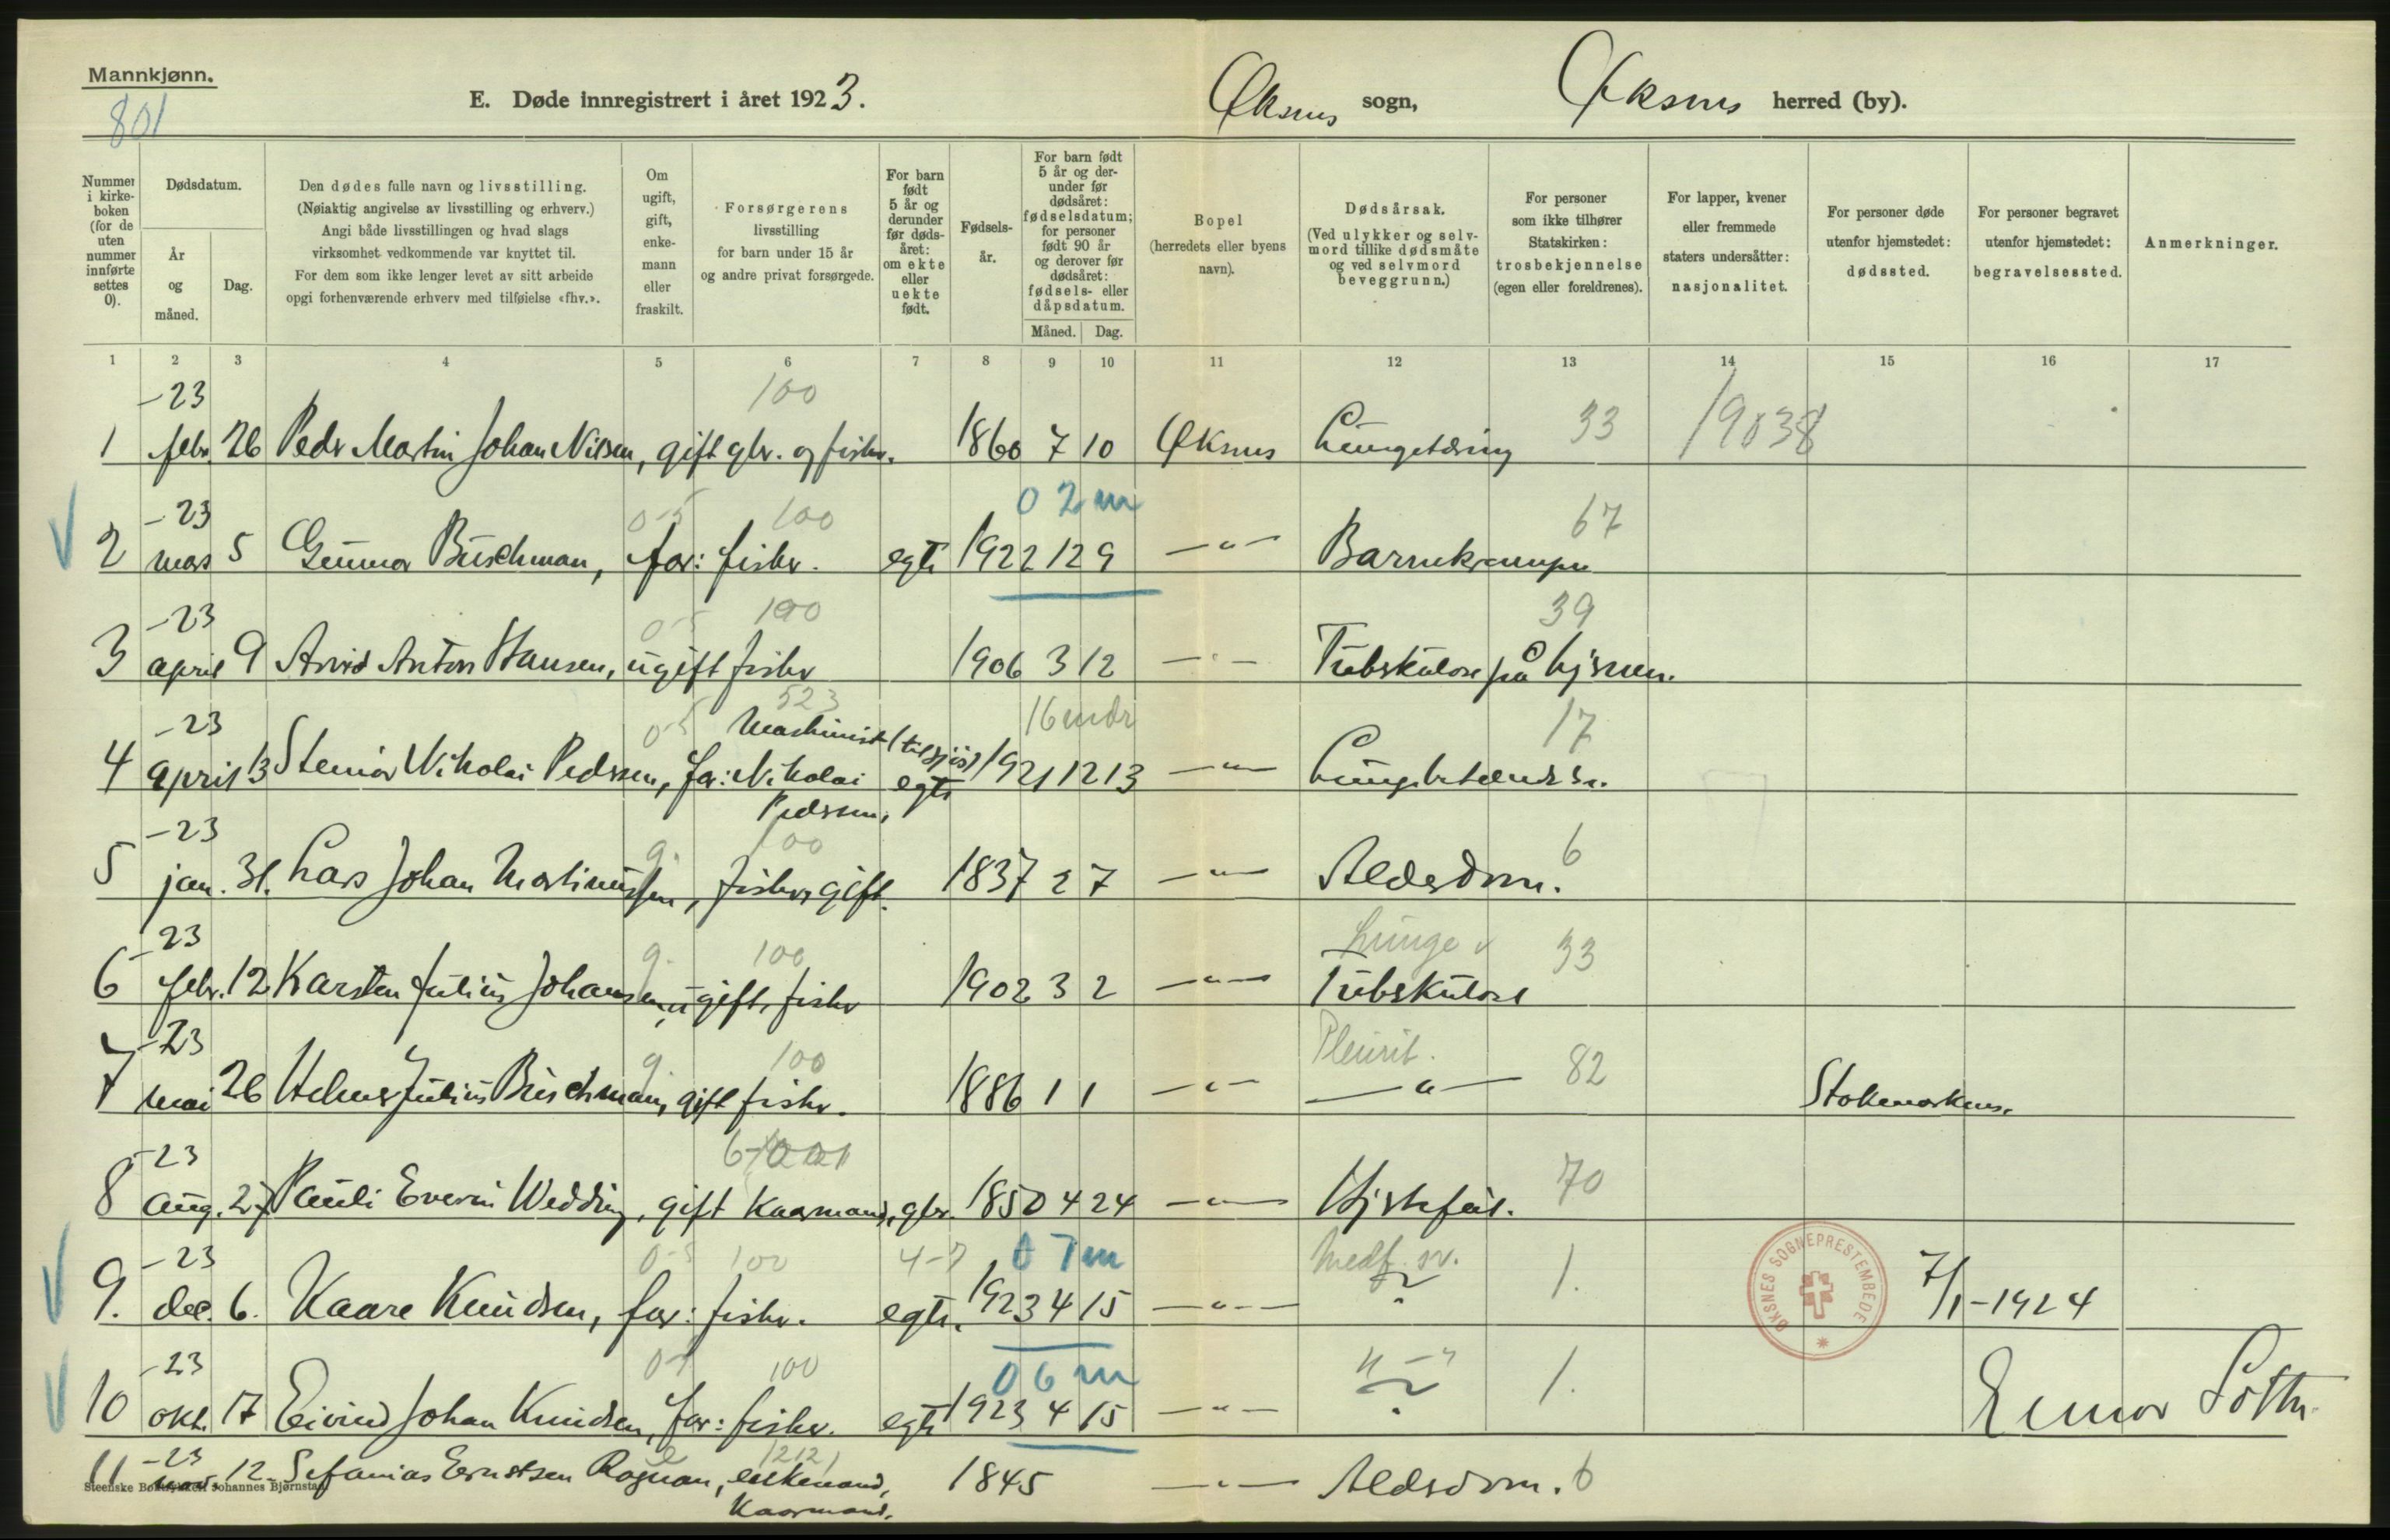 Mannkjønn.
801
E. Døde innregistrert i året 1923.
Øksnes sogn, Øksnes herred (by).
Nummer i kirkeboken (for de uten nummer innførte settes 0).
Dødsdatum.
År og måned.
Dag.
Den dødes fulle navn og livsstilling.
(Nøiaktig angivelse av livsstilling og erhverv.)
Angi både livsstillingen og hvad slags
virksomhet vedkommende var knyttet til.
For dem som ikke lenger levet av sitt arbeide
opgi forhenværende erhverv med tilføielse «fhv.».
Om ugift, gift, enkemann eller fraskilt.
Forsørgerens livsstilling
for barn under 15 år
og andre privat forsørgede.
For barn født 5 år og derunder før dødsåret: om ekte eller uekte født.
Fødselsår.
For barn født 5 år og derunder før dødsåret: fødselsdatum; for personer født 90 år og derover før dødsåret: fødsels- eller dåpsdatum.
Måned. Dag.
Bopel
(herredets eller byens navn).
Dødsårsak.
(Ved ulykker og selvmord tillike dødsmåte og ved selvmord beveggrunn.)
For personer som ikke tilhører Statskirken: trosbekjennelse (egen eller foreldrenes).
For lapper, kvener eller fremmede staters undersåtter: nasjonalitet.
For personer døde utenfor hjemstedet: dødssted.
For personer begravet utenfor hjemstedet: begravelsessted.
Anmerkninger.
1 2 3 4 5 6 7 8 9 10 11 12 13 14 15 16 17
-23 100
1 febr. 26 Peder Martin Johan Nilsen, gift gbr. og fisker. 1860 7 10 Øksnes Lungetæring 33 19038
-23 0-5 100 0 2 m
2 mars 5 Gunnar Buschman, far: fisker. egte 1922 12 9 -"- Barnekrampe 67
-23 0-5 100 39
3 april 9 Arvid Anton Hansen, ugift fisker 1906 3 12 -"- Tuberkulose på hjernen.
-23 0-5 523 16 mdr 17
Maskinist (tilsjøs)
4 april 13 Steinar Nikolai Pedersen, far: Nikolai egte 1921 12 13 -"- Lungebetændelse.
Pedersen,
-23 g. 100
5 jan. 31. Lars Johan Martinussen, fisker, gift. 1837 2 7 -"- Alderdom. 6
-23 g. 100 Lunge 33
6 febr. 12 Karsten Julius Johansen, ugift, fisker 1902 3 2 -"- Tuberkulose
-23 g. 100 Pleurit.
7 mai 26 Helmer Julius Buschman, gift fisker. 1886 1 1 -"- -"- 82 Stokmarknes.
-23
8 aug. 27 Pauli Everin Wedding, gift Kaarmand, gbr. 1850 4 24 -"- Hjertefeil. 70
-23 0-5 100 4-7 0 7 m Medf. sv.
9. dec. 6. Kaare Knudsen, far: fisker. egte. 1923 4 15 -"- ? 1. 7/1-1924
ØKSNES SOGNEPRESTEMBEDE
-23 100 0 6 m "-"
10 okt. 17 Eivind Johan Knudsen, far: fisker. egte 1923 4 15 -"- ? 1.
-23 e 1212
11 nov. 12. Sefanias Ernstsen Rognan, enkemand, 1845 -"- Alderdom. 6
Kaarmand.
Steenske Boktrykkeri Johannes Bjørnstad